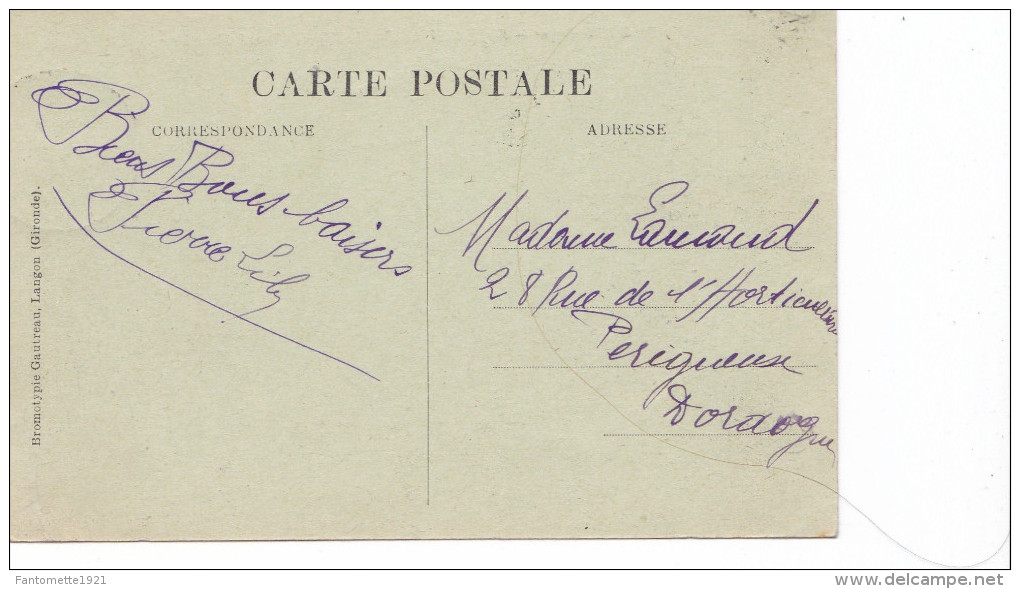 CARTE POSTALE
CORRESPONDANCE
Bons baisers
Pierre Lily
ADRESSE
Madame
28 Rue de l'Horticulture
Perigueux
Dordogne
Bromotypie Gautreau, Langon (Gironde).
Fantomette1921
www.delcampe.net